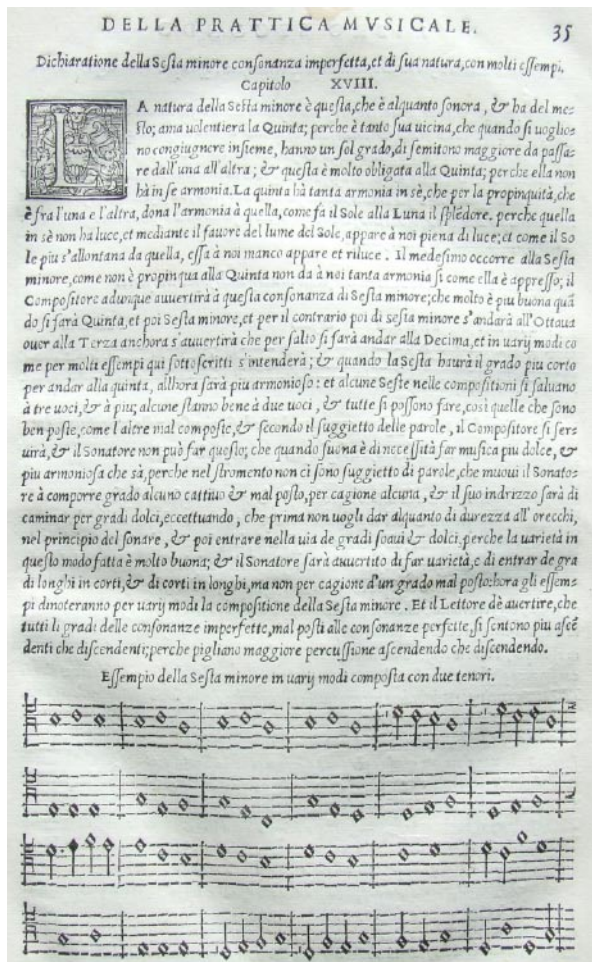 DELLA PRATTICA MVSICALE. 35
Dichiaratione della Sesta minore consonanza imperfetta, et di sua natura, con molti essempi.
Capitolo XVIII.
LA natura della Sesta minore è questa, che è alquanto sonora, & ha del me-
sto; ama uolentiera la Quinta; perche è tanto sua uicina, che quando si uoglio-
no congiugnere insieme, hanno un sol grado, di semitono maggiore da passa-
re dall'una all'altra; & questa è molto obligata alla Quinta; perche ella non
hà in se armonia. La quinta hà tanta armonia in sè, che per la propinquità, che
è fra l'una e l'altra, dona l'armonia à quella, come fa il Sole alla Luna il splẽdore. perche quella
in sè non ha luce, et mediante il fauore del lume del Sole, appare à noi piena di luce; et come il So
le piu s'allontana da quella, essa à noi manco appare et riluce. Il medesimo occorre alla Sesta
minore, come non è propinqua alla Quinta non da à noi tanta armonia si come ella è appresso; il
Compositore adunque auuertirà à questa consonanza di Sesta minore; che molto è piu buona quã
do si farà Quinta, et poi Sesta minore, et per il contrario poi di sesta minore s'andarà all'Ottaua
ouer alla Terza anchora s'auuertirà che per salto si farà andar alla Decima, et in uarij modi co
me per molti essempi qui sottoscritti s'intenderà; & quando la Sesta haurà il grado piu corto
per andar alla quinta, allhora sarà piu armonioso: et alcune Seste nelle compositioni si saluano
à tre uoci, & à piu; alcune stanno bene à due uoci, & tutte si possono fare, cosi quelle che sono
ben poste, come l'altre mal composte, & secondo il suggietto delle parole, il Compositore si ser-
uirà, & il Sonatore non può far questo; che quando suona è di necessità far musica piu dolce, &
piu armoniosa che sà, perche nel stromento non ci sono suggietto di parole, che muoui il Sonato-
re à comporre grado alcuno cattiuo & mal posto, per cagione alcuna, & il suo indrizzo sarà di
caminar per gradi dolci, eccettuando, che prima non uogli dar alquanto di durezza all'orecchi,
nel principio del sonare, & poi entrare nella uia de gradi soaui & dolci, perche la uarietà in
questo modo fatta è molto buona; & il Sonatore sarà auuertito di far uarietà, e di entrar de gra
di longhi in corti, & di corti in longhi, ma non per cagione d'un grado mal posto: hora gli essem-
pi dinoteranno per uarij modi la compositione della Sesta minore. Et il Lettore dè auertire, che
tutti li gradi delle consonanze imperfette, mal posti alle consonanze perfette, si sentono piu ascẽ
denti che discendenti; perche pigliano maggiore percussione ascendendo che discendendo.
Essempio della Sesta minore in uarij modi composta con due tenori.